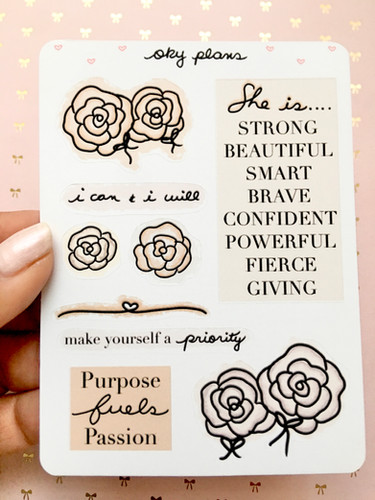 oky plans
She is....
STRONG
BEAUTIFUL
SMART
BRAVE
CONFIDENT
POWERFUL
FIERCE
GIVING
i can & i will
make yourself a priority
Purpose
fuels
Passion